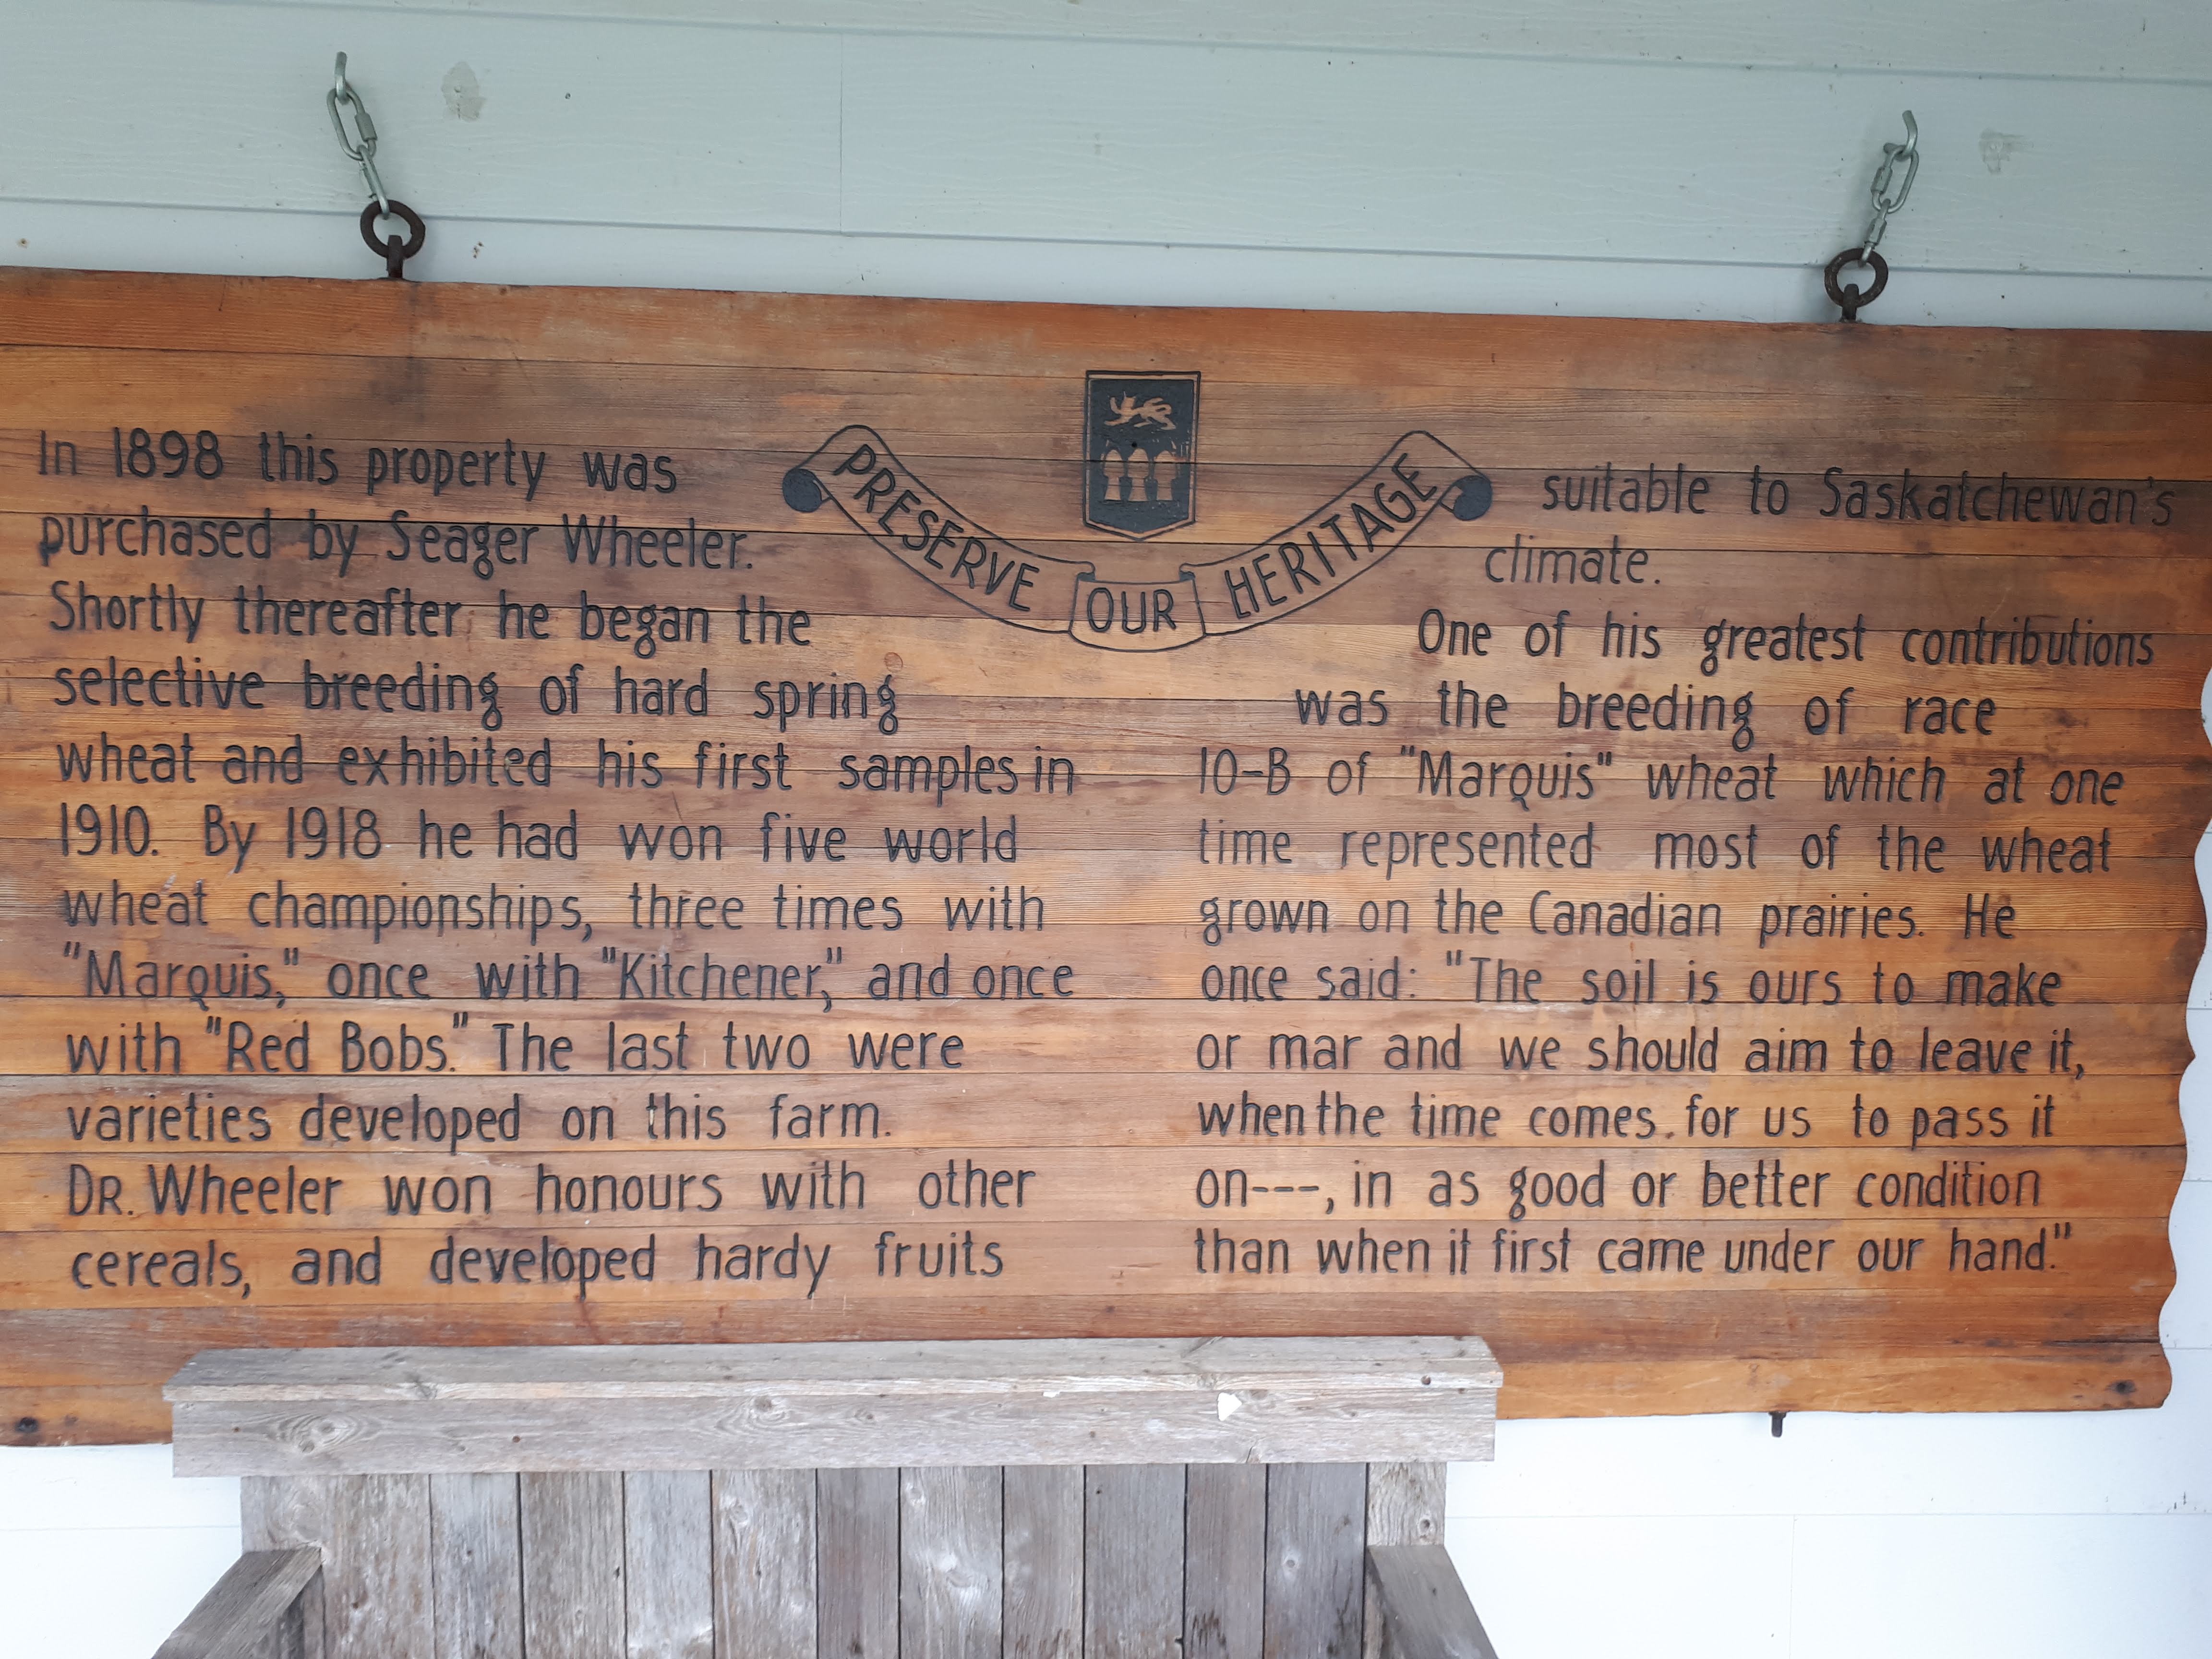 In 1898 this property was
purchased by Seager Wheeler.
Shortly thereafter he began the
selective breeding of hard spring
wheat and exhibited his first samples in
1910. By 1918 he had won five world
wheat championships, three times with
"Marquis," once with "Kitchener," and once
with "Red Bobs." The last two were
varieties developed on this farm.
DR. Wheeler won honours with other
cereals, and developed hardy fruits
PRESERVE OUR HERITAGE
suitable to Saskatchewan's
climate.
One of his greatest contributions
was the breeding of race
10-B of "Marquis" wheat which at one
time represented most of the wheat
grown on the Canadian prairies. He
once said: "The soil is ours to make
or mar and we should aim to leave it,
when the time comes for us to pass it
on---, in as good or better condition
than when it first came under our hand."